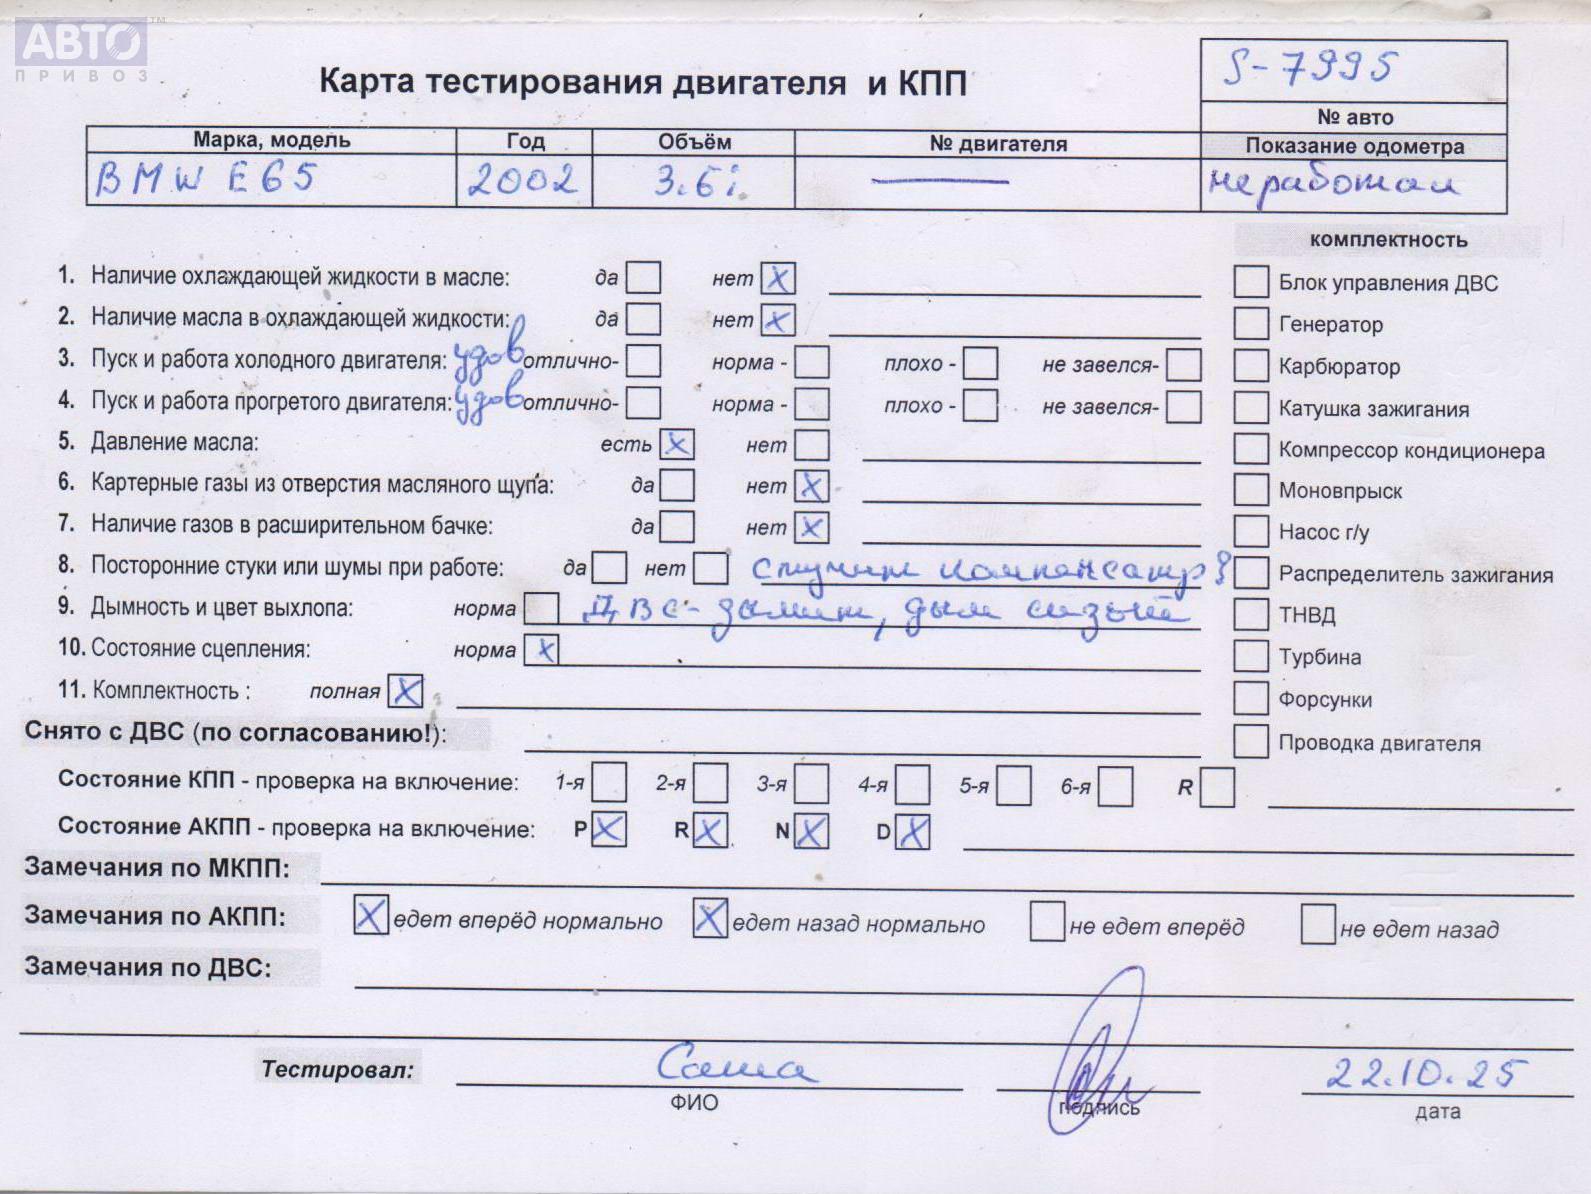 АВТО™
ПРИВОЗ
Карта тестирования двигателя и КПП
S-7995
№ авто
Марка, модель Год Объём № двигателя Показание одометра
BMW E65 2002 3.6i. — не работал
комплектность
1. Наличие охлаждающей жидкости в масле: да нет X Блок управления ДВС
2. Наличие масла в охлаждающей жидкости: да нет X Генератор
3. Пуск и работа холодного двигателя: удов отлично- норма - плохо - не завелся- Карбюратор
4. Пуск и работа прогретого двигателя: удов отлично- норма - плохо - не завелся- Катушка зажигания
5. Давление масла: есть X нет Компрессор кондиционера
6. Картерные газы из отверстия масляного щупа: да нет X Моновпрыск
7. Наличие газов в расширительном бачке: да нет X Насос г/у
8. Посторонние стуки или шумы при работе: да нет стучит компенсатр Распределитель зажигания
9. Дымность и цвет выхлопа: норма ДВС-дымит, дым сизый ТНВД
10. Состояние сцепления: норма X Турбина
11. Комплектность : полная X Форсунки
Снято с ДВС (по согласованию!): Проводка двигателя
Состояние КПП - проверка на включение: 1-я 2-я 3-я 4-я 5-я 6-я R
Состояние АКПП - проверка на включение: P X R X N X D X
Замечания по МКПП:
Замечания по АКПП: X едет вперёд нормально X едет назад нормально не едет вперёд не едет назад
Замечания по ДВС:
Тестировал: Саша 22.10.25
ФИО подпись дата